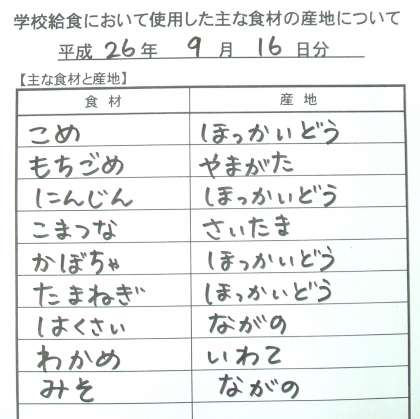 学校給食において使用した主な食材の産地について
平成 26 年 9 月 16 日分
【主な食材と産地】
食材 産地
こめ ほっかいどう
もちごめ やまがた
にんじん ほっかいどう
こまつな さいたま
かぼちゃ ほっかいどう
たまねぎ ほっかいどう
はくさい ながの
わかめ いわて
みそ ながの